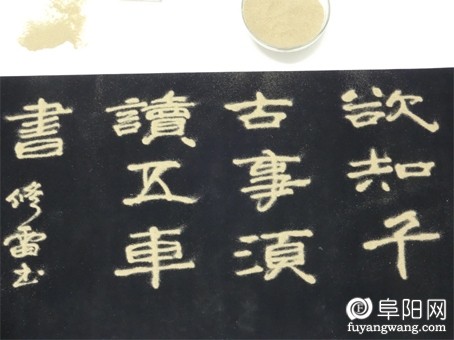 欲知千
古事須
讀五車
書
修雷书
阜阳网
fuyangwang.com